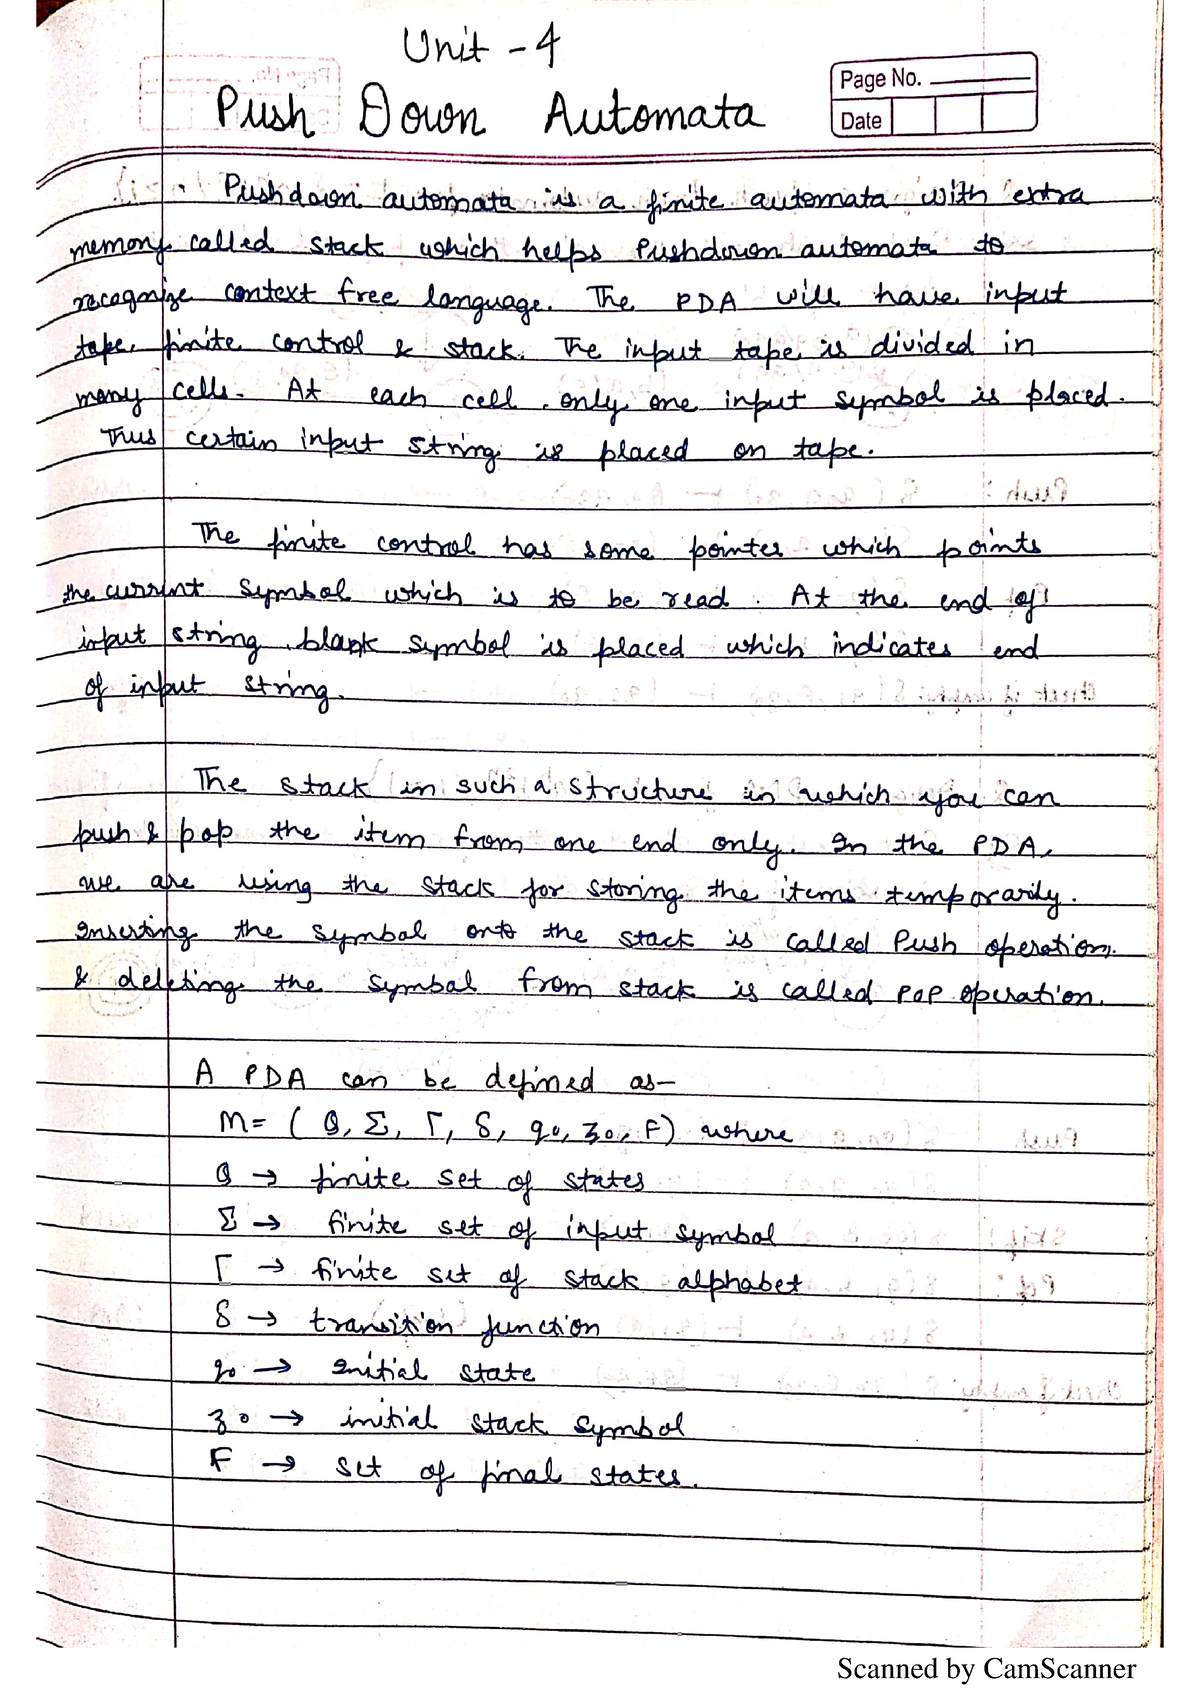 Unit - 4
Push Down Automata
Page No.
Date
Pushdown automata is a finite automata with extra
memory called stack which helps Pushdown automata to
recognize context free language. The PDA will have input
tape, finite control & stack. The input tape is divided in
many cells. At each cell, only one input symbol is placed.
Thus certain input string is placed on tape.
The finite control has some pointer which points
the current symbol which is to be read. At the end of
input string blank symbol is placed which indicates end
of input string.
The stack in such a structure in which you can
push & pop the item from one end only. In the PDA,
we are using the stack for storing the items temporarily.
Inserting the symbol onto the stack is called Push operation
& deleting the symbol from stack is called POP operation.
A PDA can be defined as—
M= ( Q, Σ, Γ, δ, q0, z0, F) where
Q → finite set of states
Σ → finite set of input symbol
Γ → finite set of stack alphabet
δ → transition function
q0 → Initial state
z0 → initial stack symbol
F → set of final states.
Scanned by CamScanner